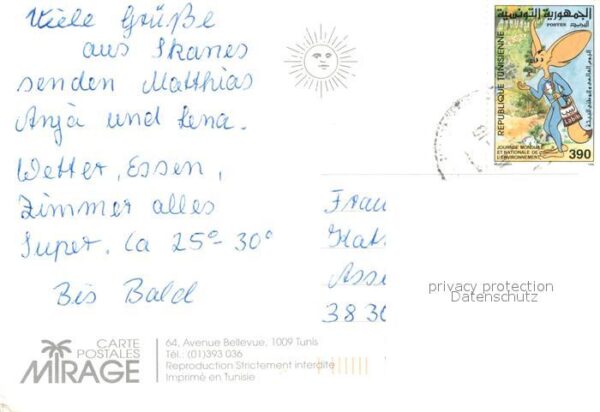 Viele Grüße
aus Skanes
senden Matthias
Anja und Lena.
Wetter, Essen,
Zimmer alles
Super. Ca 25°-30°
Bis Bald
الجمهورية التونسية
POSTES
REPUBLIQUE TUNISIENNE
JOURNEE MONDIALE
ET NATIONALE DE
L'ENVIRONNEMENT
390
Frau
Kat
Asse
3830
privacy protection
Datenschutz
CARTE
POSTALES
MIRAGE
64, Avenue Bellevue, 1009 Tunis
Tél.: (01)393 036
Reproduction Strictement interdite
Imprimé en Tunisie